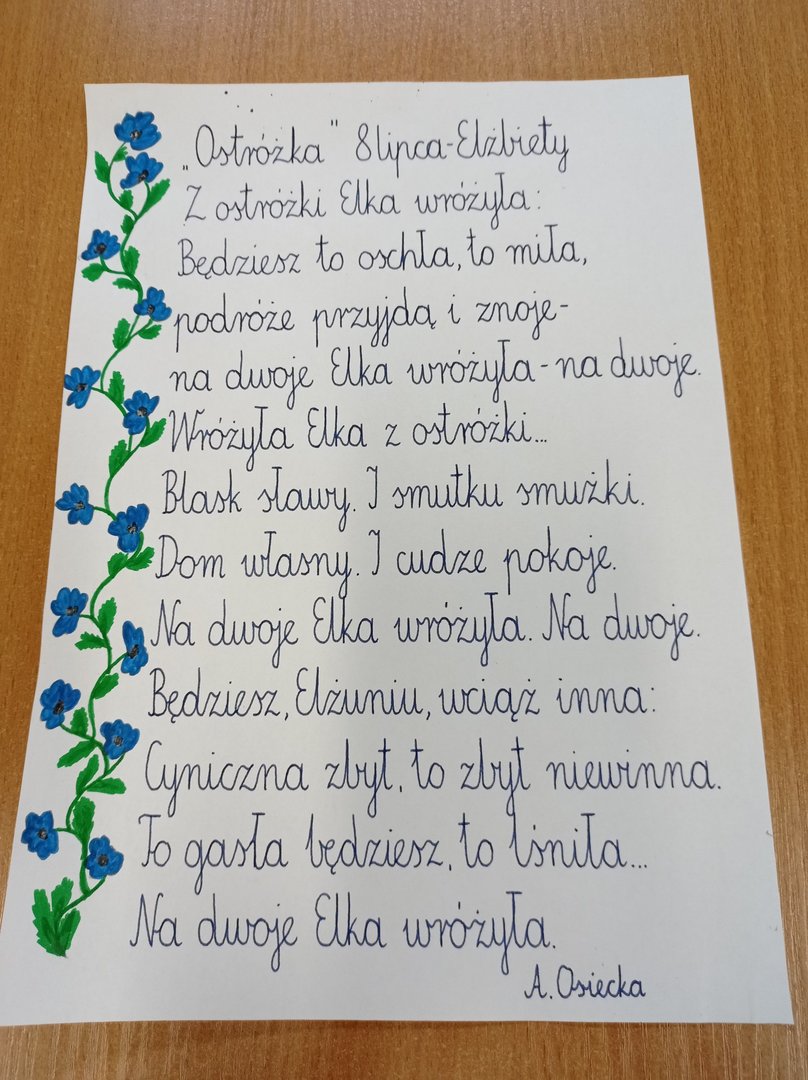 „Ostróżka" 8 lipca-Elżbiety
Z ostróżki Elka wróżyła:
Będziesz to oschła, to miła,
podróże przyjdą i znoje-
na dwoje Elka wróżyła-na dwoje.
Wróżyła Elka z ostróżki...
Blask sławy. I smutku smużki.
Dom własny. I cudze pokoje.
Na dwoje Elka wróżyła. Na dwoje.
Będziesz, Elżuniu, wciąż inna:
Cyniczna zbyt, to zbyt niewinna.
To gasła będziesz, to lśniła...
Na dwoje Elka wróżyła.
A. Osiecka